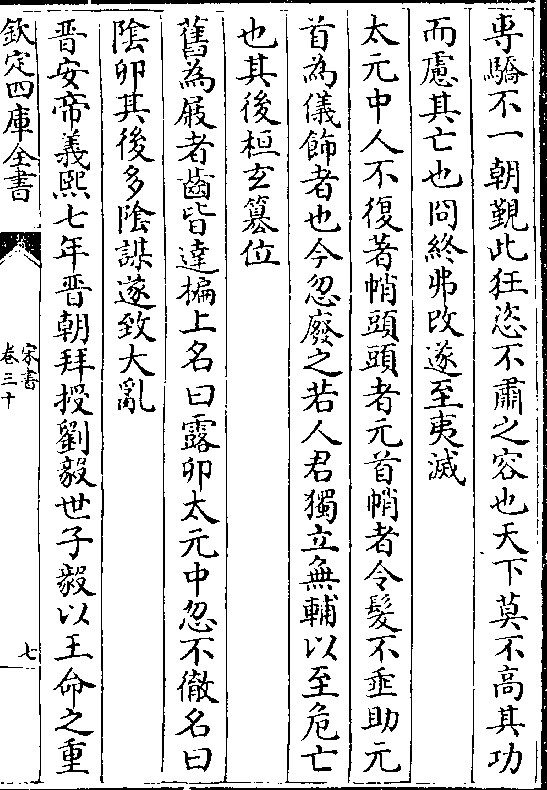 專驕不一朝覲此狂恣不肅之容也天下莫不高其功
而慮其亡也冏終弗改遂至夷滅
太元中人不復著帩頭頭者元首帩者令髮不垂助元
首為儀飾者也今忽廢之若人君獨立無輔以至危亡
也其後桓玄簒位
舊為屐者齒皆達楄上名曰露卯太元中忽不徹名曰
陰卯其後多陰謀遂致大亂
晉安帝義熙七年晉朝拜授劉毅世子毅以王命之重
欽定四庫全書
宋書
卷三十
七